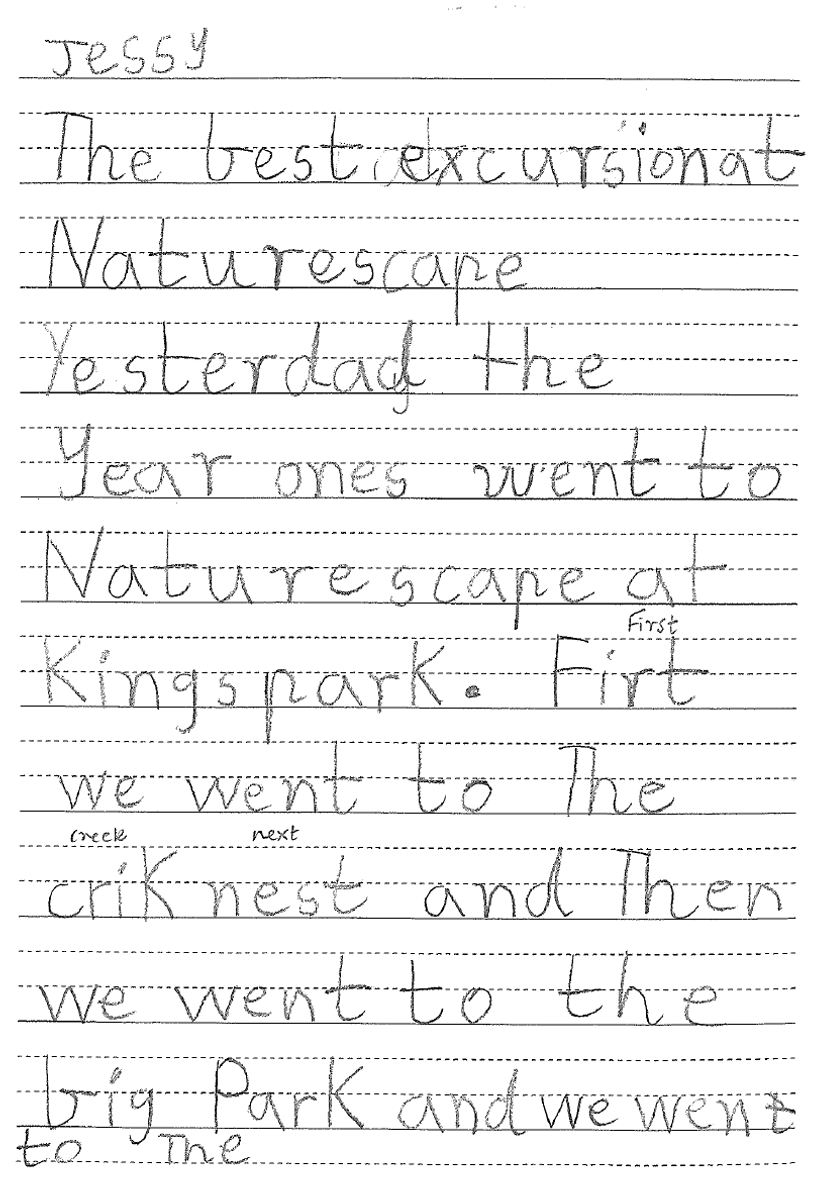 Jessy
The best excursionat
Naturescape
Yesterday the
Year ones went to
Naturescape at
First
Kingspark. Firt
we went to The
creek next
criK nest and Then
we went to the
big ParK and we went
to The